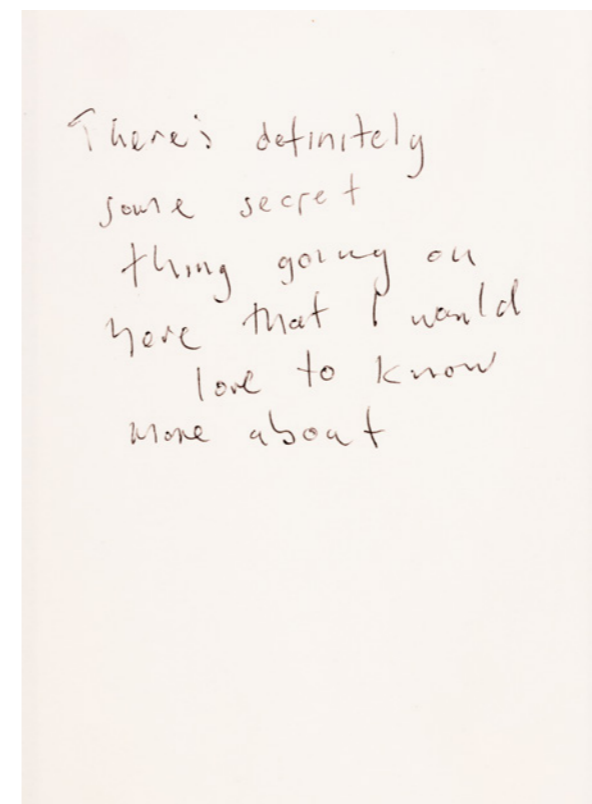 There's definitely
some secret
thing going on
here that I would
love to know
more about